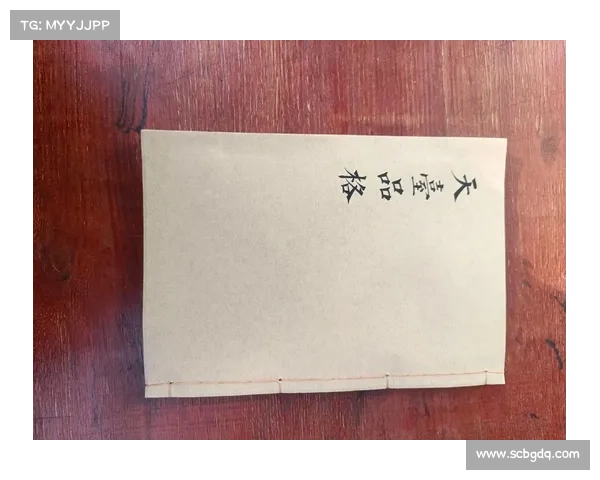 TG: MYYJJPP
天臺品格
www.scbgdq.com